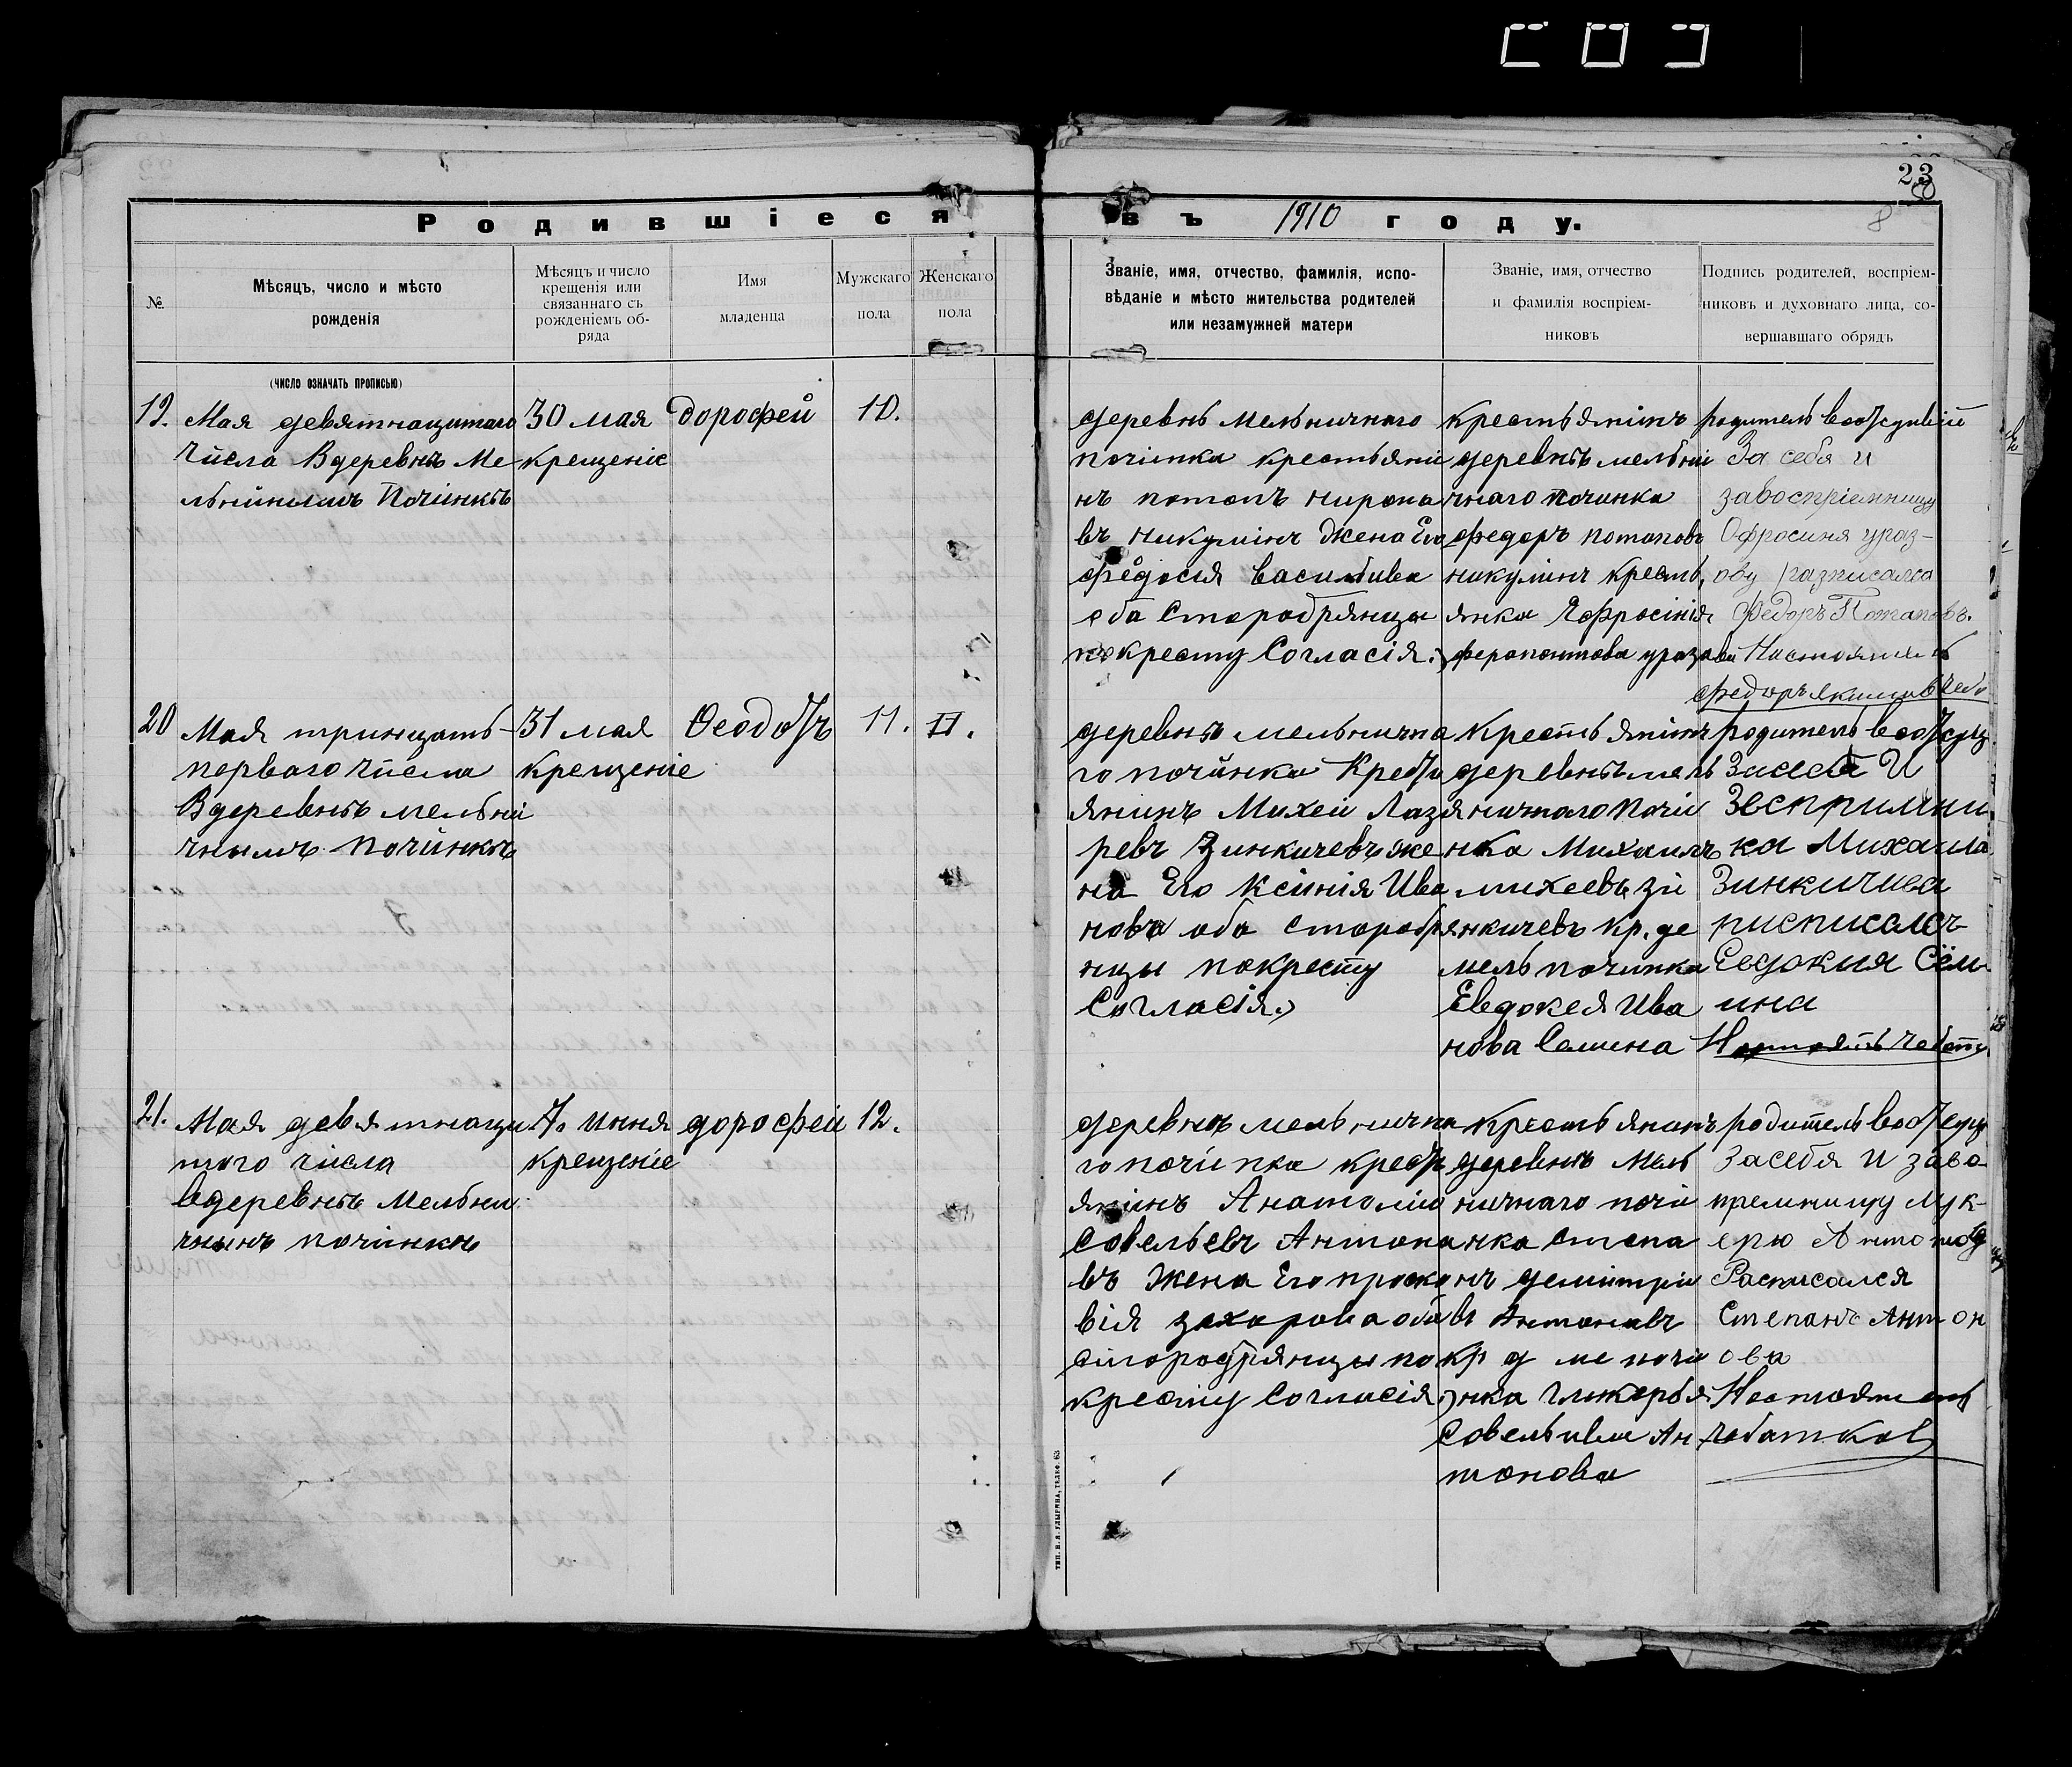 23
Родившіеся въ 1910 году.
8
№
Мѣсяцъ, число и мѣсто
рожденія
Мѣсяцъ и число
крещенія или
связаннаго съ
рожденіемъ об-
ряда
Имя
младенца
Мужскаго
пола
Женскаго
пола
Званіе, имя, отчество, фамилія, испо-
вѣданіе и мѣсто жительства родителей
или незамужней матери
Званіе, имя, отчество
и фамилія воспріем-
никовъ
Подпись родителей, воспріем-
никовъ и духовнаго лица, со-
вершавшаго обрядъ
(число означать прописью)
19.
Мая девятнацитаго
числа Вдеревнѣ Ме
льничнымъ Починкѣ
30 мая
крещеніе
Дорофей
10.
деревнѣ мельничнаго
починка крестьяни
нъ потапъ мирона
въ никулинъ жена Его
федосія васильива
оба Старобрянцы
покресту Согласія.
крестьянинъ
деревнѣ мельни
чнаго починка
федоръ потаповъ
никулинъ кресть
янка Ефросинія
ферапонтова уразова
родитель
За себя и
завоспріемницу
Офросиня ураз-
ову расписался
Федоръ Потаповъ.
Настоятель
20
Мая тринцать-
перваго числа
Вдеревнѣ мельни
чнымъ починкѣ
31 мая
крещеніе
Ѳеодотъ
11.
11.
деревнѣ мельнична
го починка Кресть
янинъ Михеи Лаза
ревъ Зинкичевъ же
на Его Ксинія Ива
нова оба старобря
нцы покресту
Согласія.
Крестьянинъ
деревнѣ мель
ничнаго почи
нка Михаилъ
михеевъ зи
нкичевъ кр. де
мель починка
Евдокея Ива
нова Семина
родитель
Засебя И
Зеспримни
ка Михаила
Зинкичива
Евдокия Сём
ина
21.
Мая девятнаци
таго числа
вдеревнѣ Мельни
чнымъ починкѣ
7. июня
крещеніе
дорофеи
12.
деревнѣ мельнична
го починка кресть
янинъ Анатолии
Совельевъ Антона
въ Жена Его праско
вія захарова оба
старобрянцы по
кресту Согласія.
Крестьянинъ
деревнѣ Мель
ничнаго почи
нка степа
нъ демитри
въ Антоновъ
кр д ме почи
нка гликерья
Совельива Ан
тонова
родитель
Засебя И заво
премницу лук-
ерю
Расписался
Степанъ Антон
ова
Настоятель
Чебатков